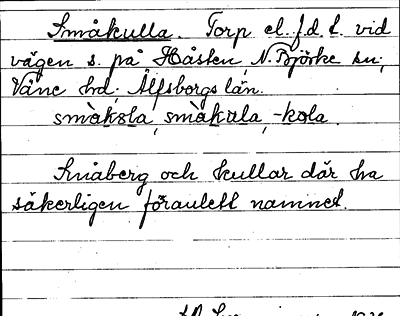 Småkulla. Torp el. f.d. t. vid
vägen s. på Håsten, N. Björke sn;
Väne hd; Älfsborgs län.
smàkɵla, smàkula, -kola.
Småberg och kullar där ha
säkerligen föranlett namnet.